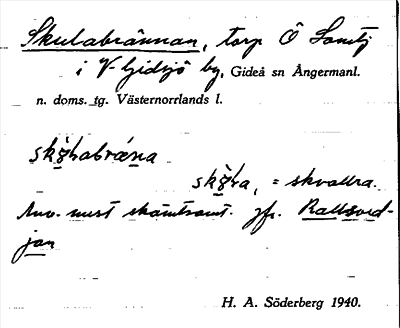 Skulabrännan, torp Ö Lomtj
i V-Gidsjö by, Gideå sn Ångermanl.
n. doms. tg. Västernorrlands l.
skø̀labrǽna
skø̀la, = skvallra.
Anv. mest skämtsamt. Jfr. Rallsved-
jan
H. A. Söderberg 1940.